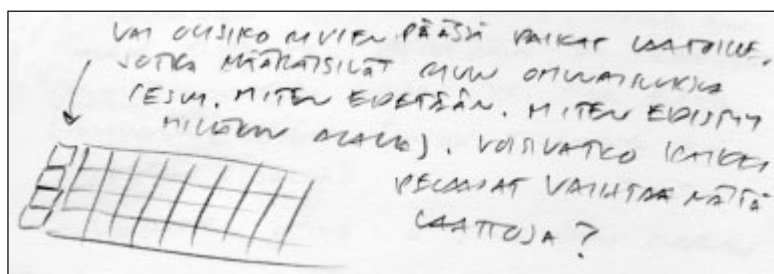 VAI OLISIKO RIVIEN PÄÄSSÄ PAIKAT LAATOILLE,
JOTKA MÄÄRÄISIVÄT RIVIN OMINAISUUKSIA
(ESIM. MITEN EDETÄÄN. MITEN EDISTYY
VOISIVATKO KAIKKI
PELAAJAT VAIHTAA NÄITÄ
LAATTOJA?